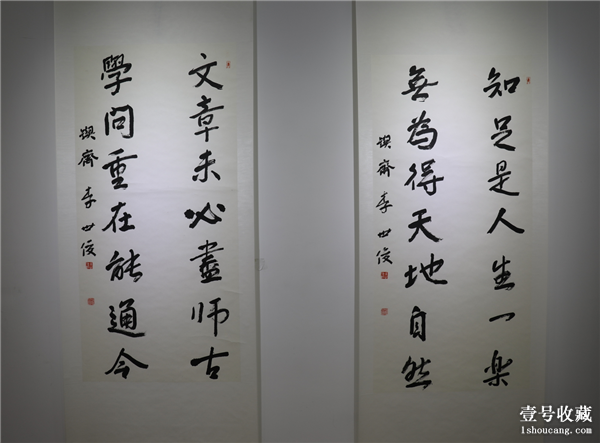 知足是人生一樂
無為得天地自然
李世俊
文章未必盡師古
學問重在能通今
李世俊
壹号收藏
1shoucang.com